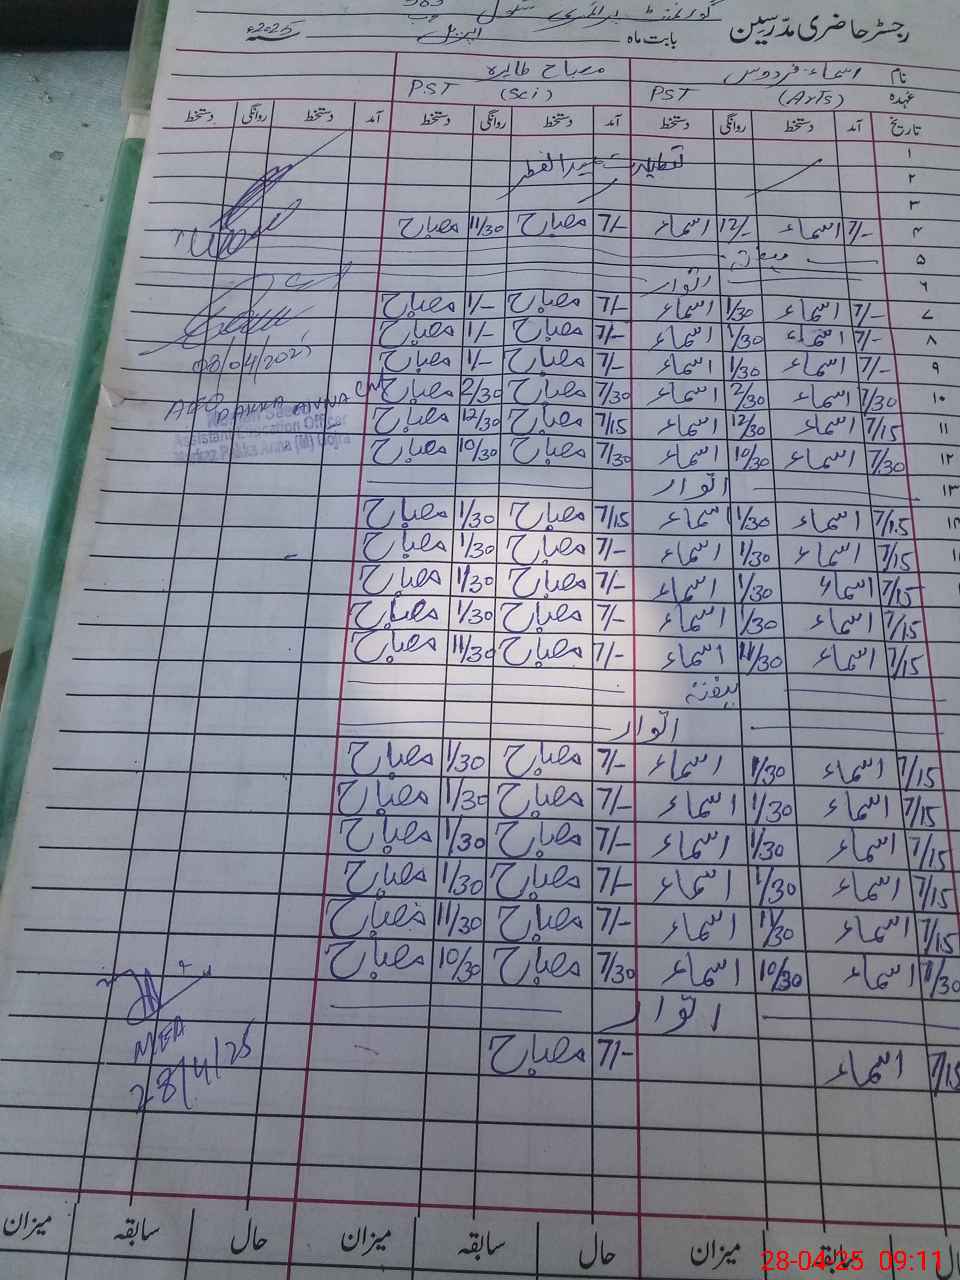 گورنمنٹ پرائمری سکول 363
رجسٹر حاضری مدرسین بابت ماہ اپریل 2025ء
نام اسماء فردوس مصباح طاہرہ
عہدہ (Arts) PST (Sci) P.S.T
تاریخ آمد دستخط روانگی دستخط آمد دستخط روانگی دستخط آمد دستخط روانگی دستخط
۱
۲ تعطیلات عیدالفطر
۳
۴ 7/- اسماء 12/- اسماء 7/- مصباح 11/30 مصباح
۵ ہفتہ
۶ اتوار
۷ 7/- اسماء 1/30 اسماء 7/- مصباح 1/- مصباح
۸ 7/- اسماء 1/30 اسماء 7/- مصباح 1/- مصباح
08/04/2025
۹ 7/- اسماء 1/30 اسماء 7/- مصباح 1/- مصباح
۱۰ 7/30 اسماء 2/30 اسماء 7/30 مصباح 2/30 مصباح
AEO PAKKA ANNA
Assistant Education Officer
۱۱ 7/15 اسماء 12/30 اسماء 7/15 مصباح 12/30 مصباح
۱۲ 7/30 اسماء 10/30 اسماء 7/30 مصباح 10/30 مصباح
۱۳ اتوار
7/15 اسماء 1/30 اسماء 7/15 مصباح 1/30 مصباح
7/15 اسماء 1/30 اسماء 7/- مصباح 1/30 مصباح
7/15 اسماء 1/30 اسماء 7/- مصباح 1/30 مصباح
7/15 اسماء 1/30 اسماء 7/- مصباح 1/30 مصباح
7/15 اسماء 11/30 اسماء 7/- مصباح 11/30 مصباح
ہفتہ
اتوار
7/15 اسماء 1/30 اسماء 7/- مصباح 1/30 مصباح
7/15 اسماء 1/30 اسماء 7/- مصباح 1/30 مصباح
7/15 اسماء 1/30 اسماء 7/- مصباح 1/30 مصباح
7/15 اسماء 1/30 اسماء 7/- مصباح 1/30 مصباح
7/15 اسماء 11/30 اسماء 7/- مصباح 11/30 مصباح
7/30 اسماء 10/30 اسماء 7/30 مصباح 10/30 مصباح
اتوار
7/15 اسماء 7/- مصباح
MEA
28/4/25
حال سابقہ میزان حال سابقہ میزان حال سابقہ میزان
28-04-25 09:11